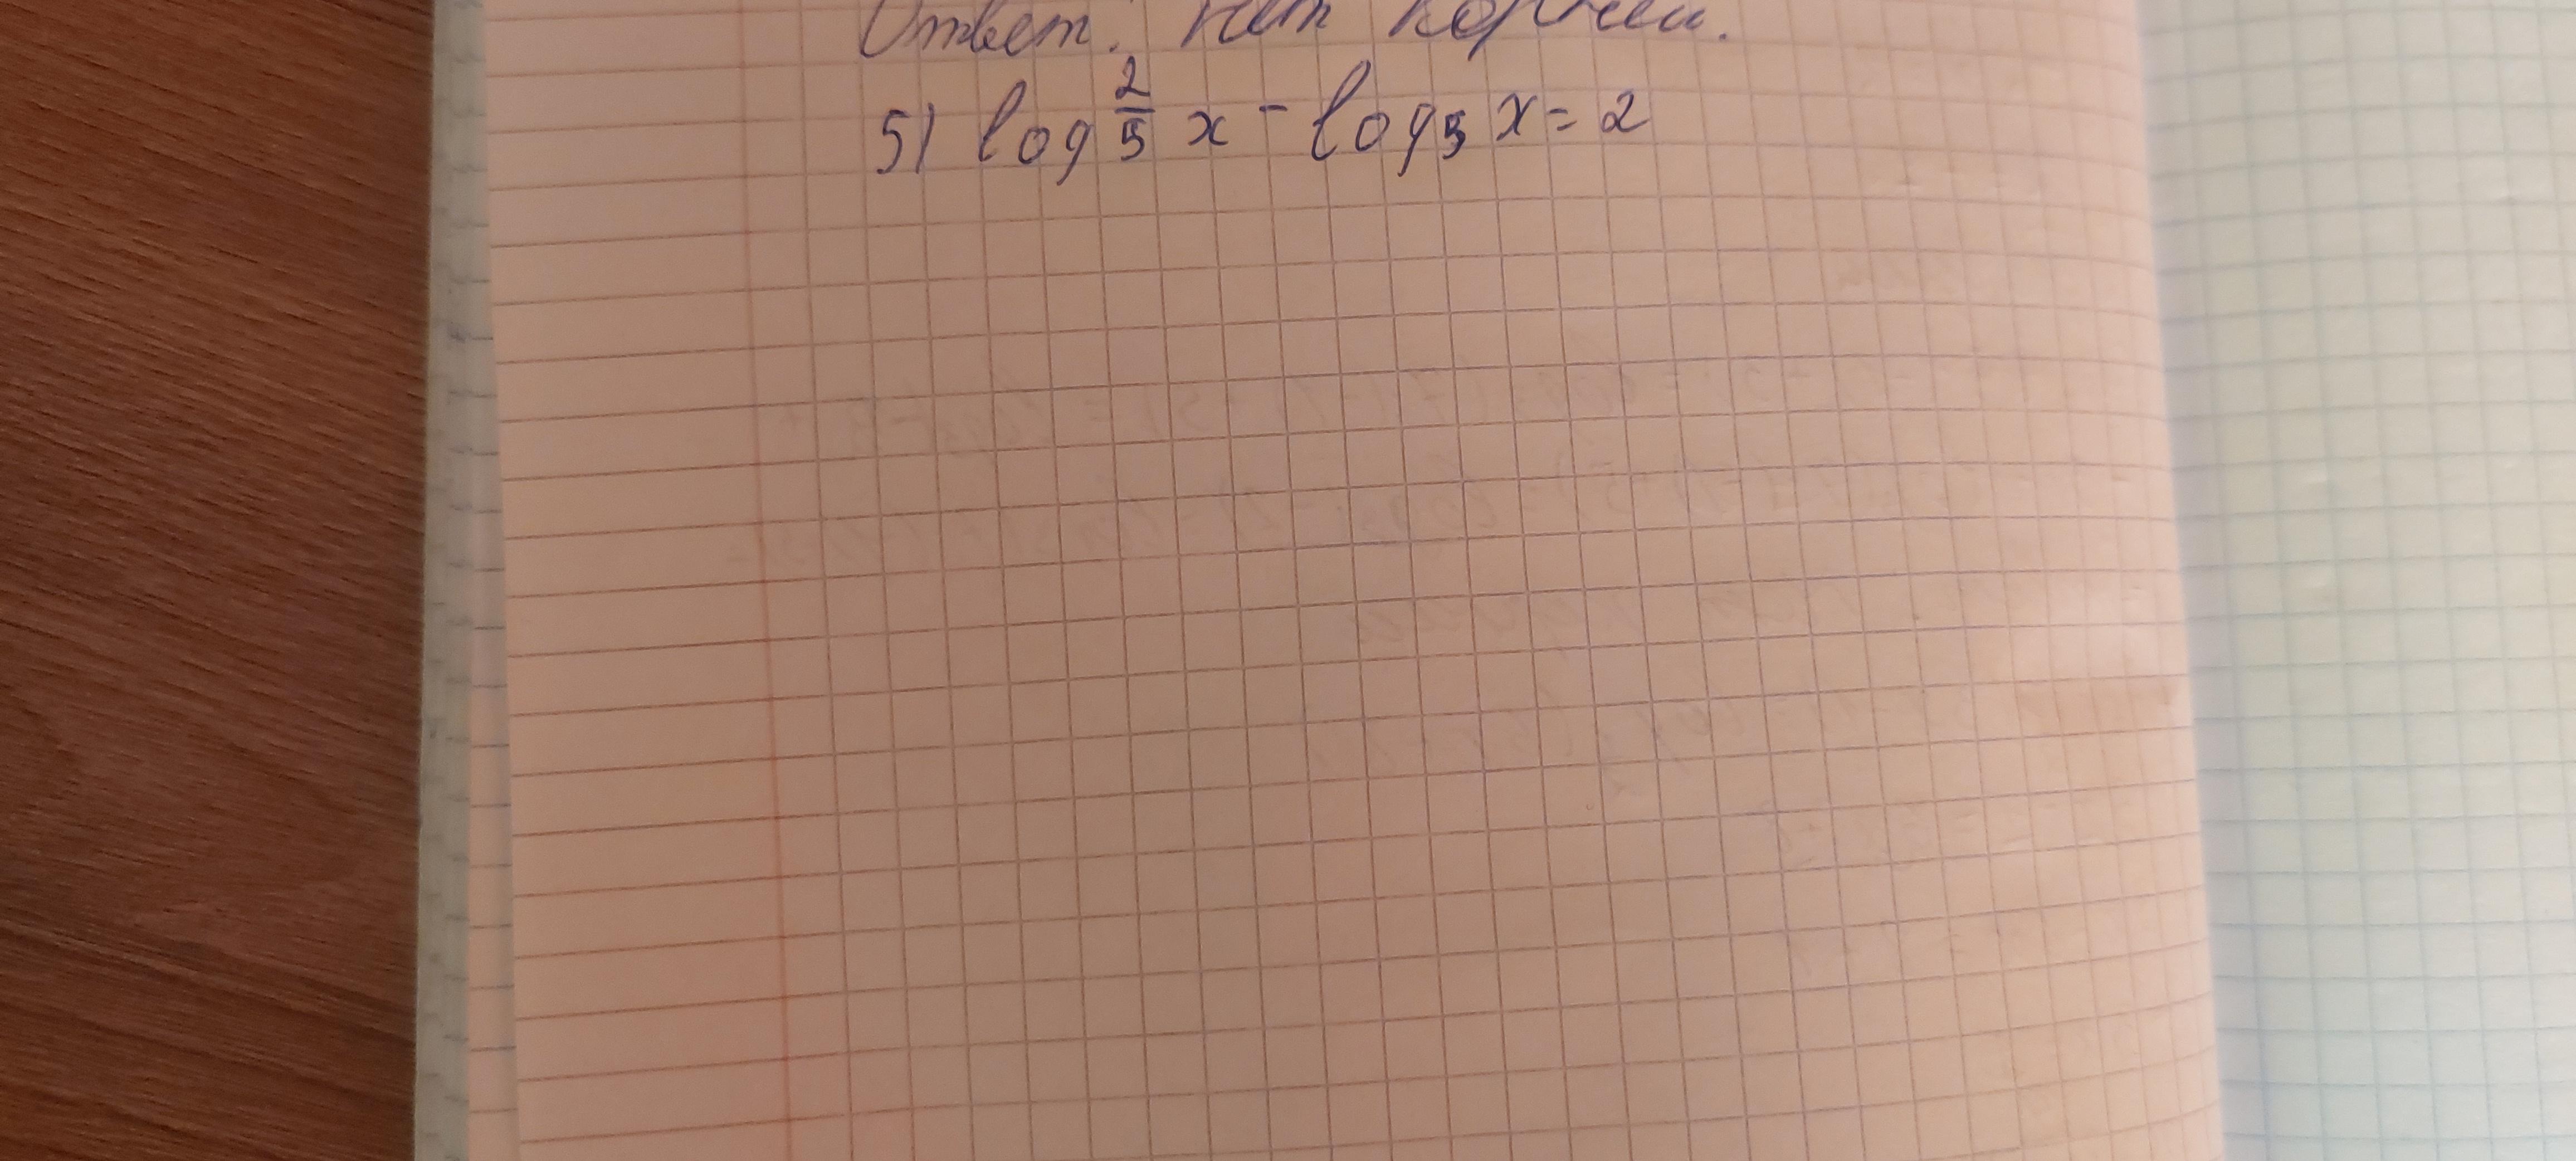 Ответ: нет корней.
5) log 2/5 x - log₅ x = 2